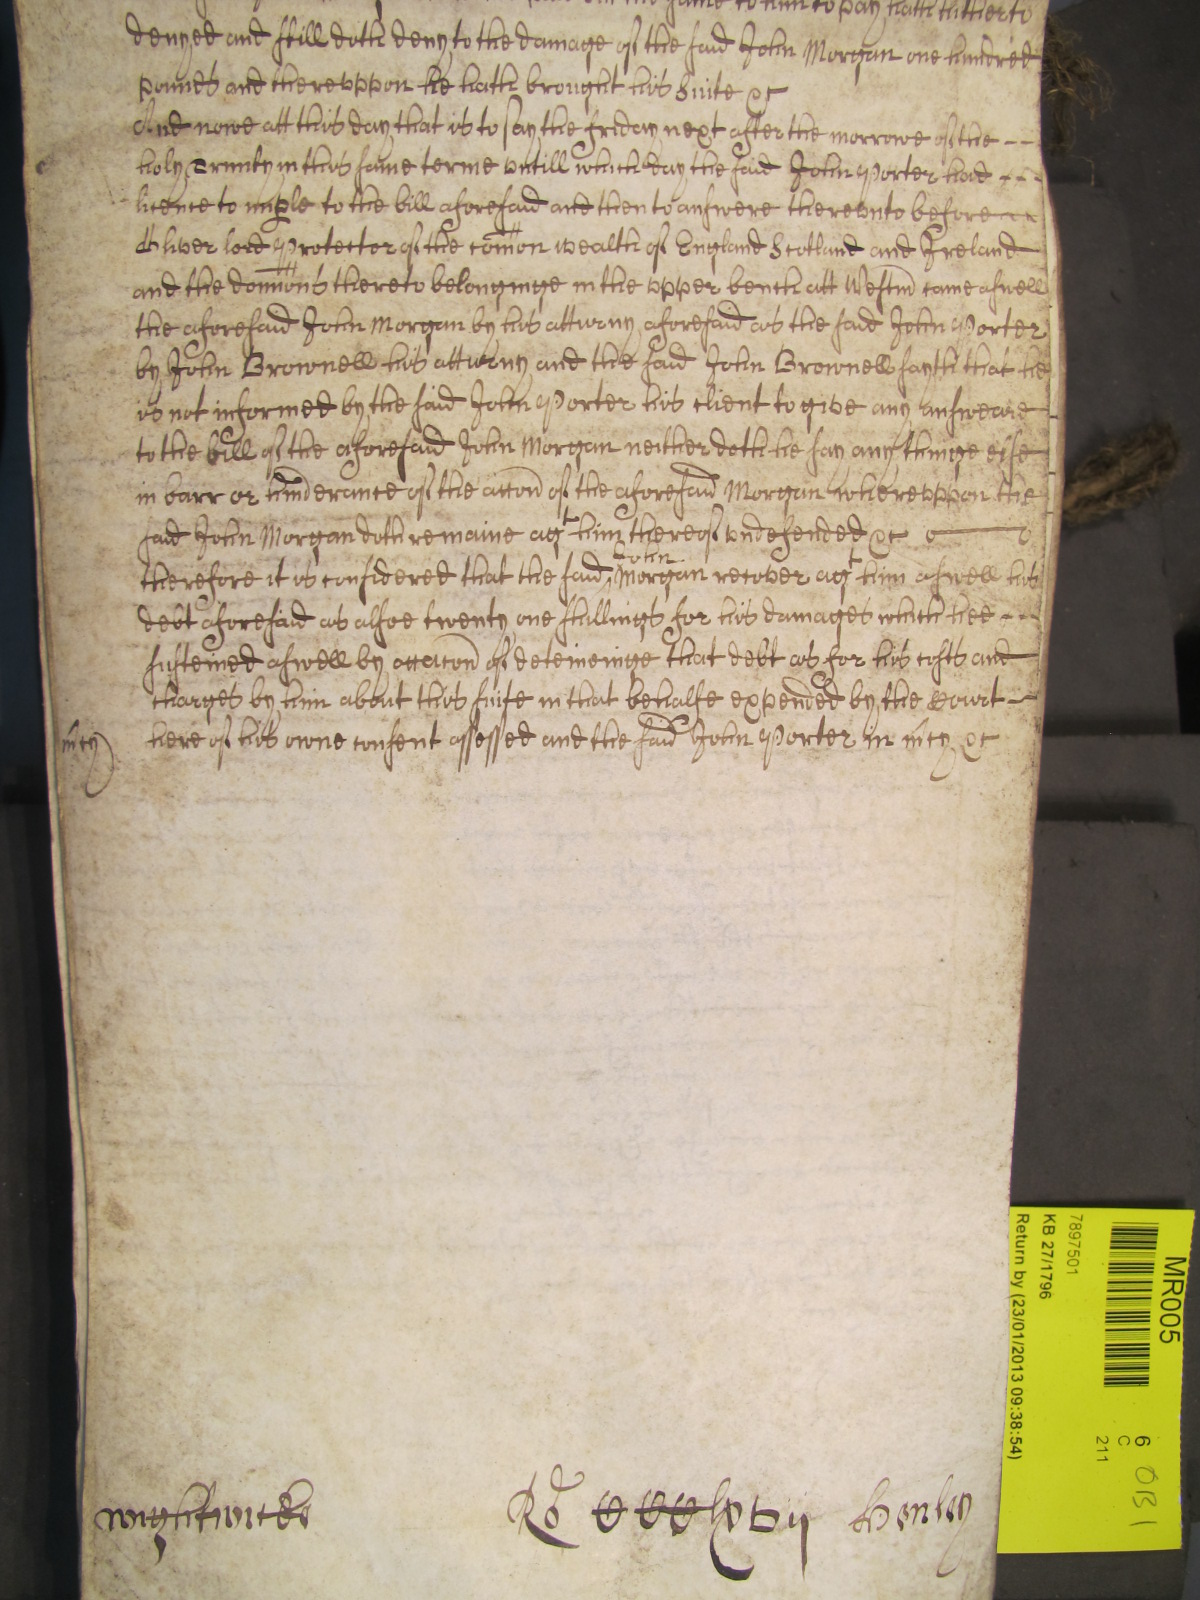 the same to him to pay hath hitherto
denyed and still doth deny to the damage of the said John Morgan one hundred
pounds and thereuppon he hath brought his suite &c
And nowe att this day that is to say the friday next after the morrowe of the
holy Trinity in this same terme untill which day the said John Porter had
licence to imple to the bill aforesaid and then to answere thereunto before
Oliver lord Protector of the comon wealth of England Scotland and Ireland
and the domions thereto belonginge in the upper bench att Westm came aswell
the aforesaid John Morgan by his atturny aforesaid as the said John Porter
by John Brownell his atturny and the said John Brownell sayth that he
is not informed by the said John Porter his client to give any answeare
to the bill of the aforesaid John Morgan neither doth he say any thinge else
in barr or hinderance of the accon of the aforesaid Morgan whereuppon the
said John Morgan doth remaine agt him thereof undefended &c
therefore it is considered that the said John Morgan recover agt him aswell his
debt aforesaid as alsoe twenty one shillings for his damages which hee
susteined aswell by occacon of deteineinge that debt as for his costs and
charges by him about this suite in that behalfe expended by the Court
mcy
here of his owne consent assessed and the said John Porter in mcy &c
Wightwicke
Ro
Henley
MR005
7897501
KB 27/1796
Return by (23/01/2013 09:38:54)
6
C
211
OB1